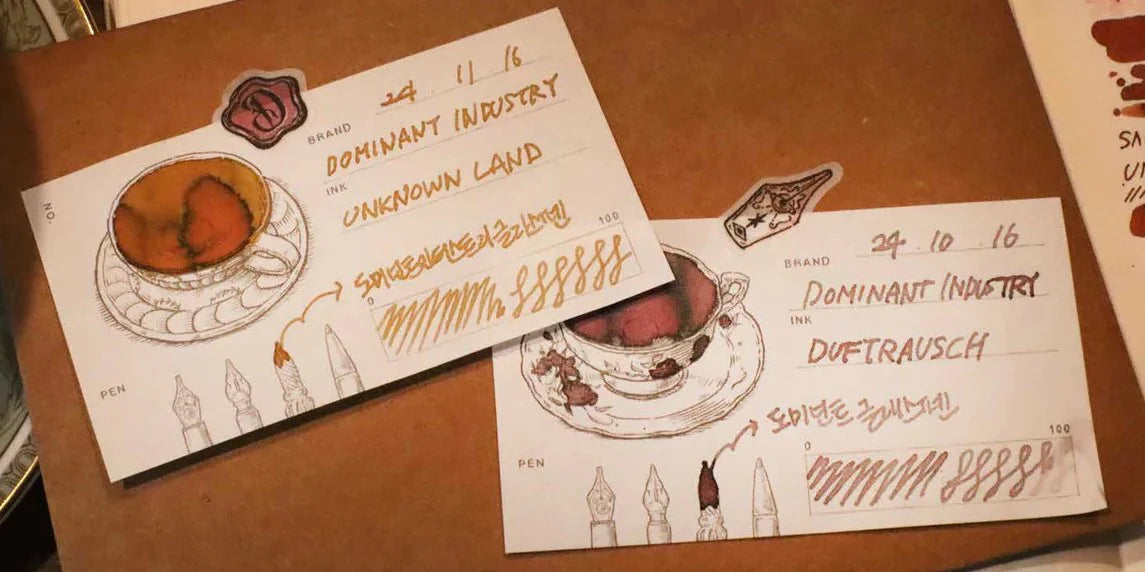 NO.
24 . 11 . 16
BRAND
DOMINANT INDUSTRY
INK
UNKNOWN LAND
도미넌트인더스트리 글라스펜
0 100
PEN
24 . 10 . 16
BRAND
DOMINANT INDUSTRY
INK
DUFTRAUSCH
도미넌트 글라스펜
0 100
PEN